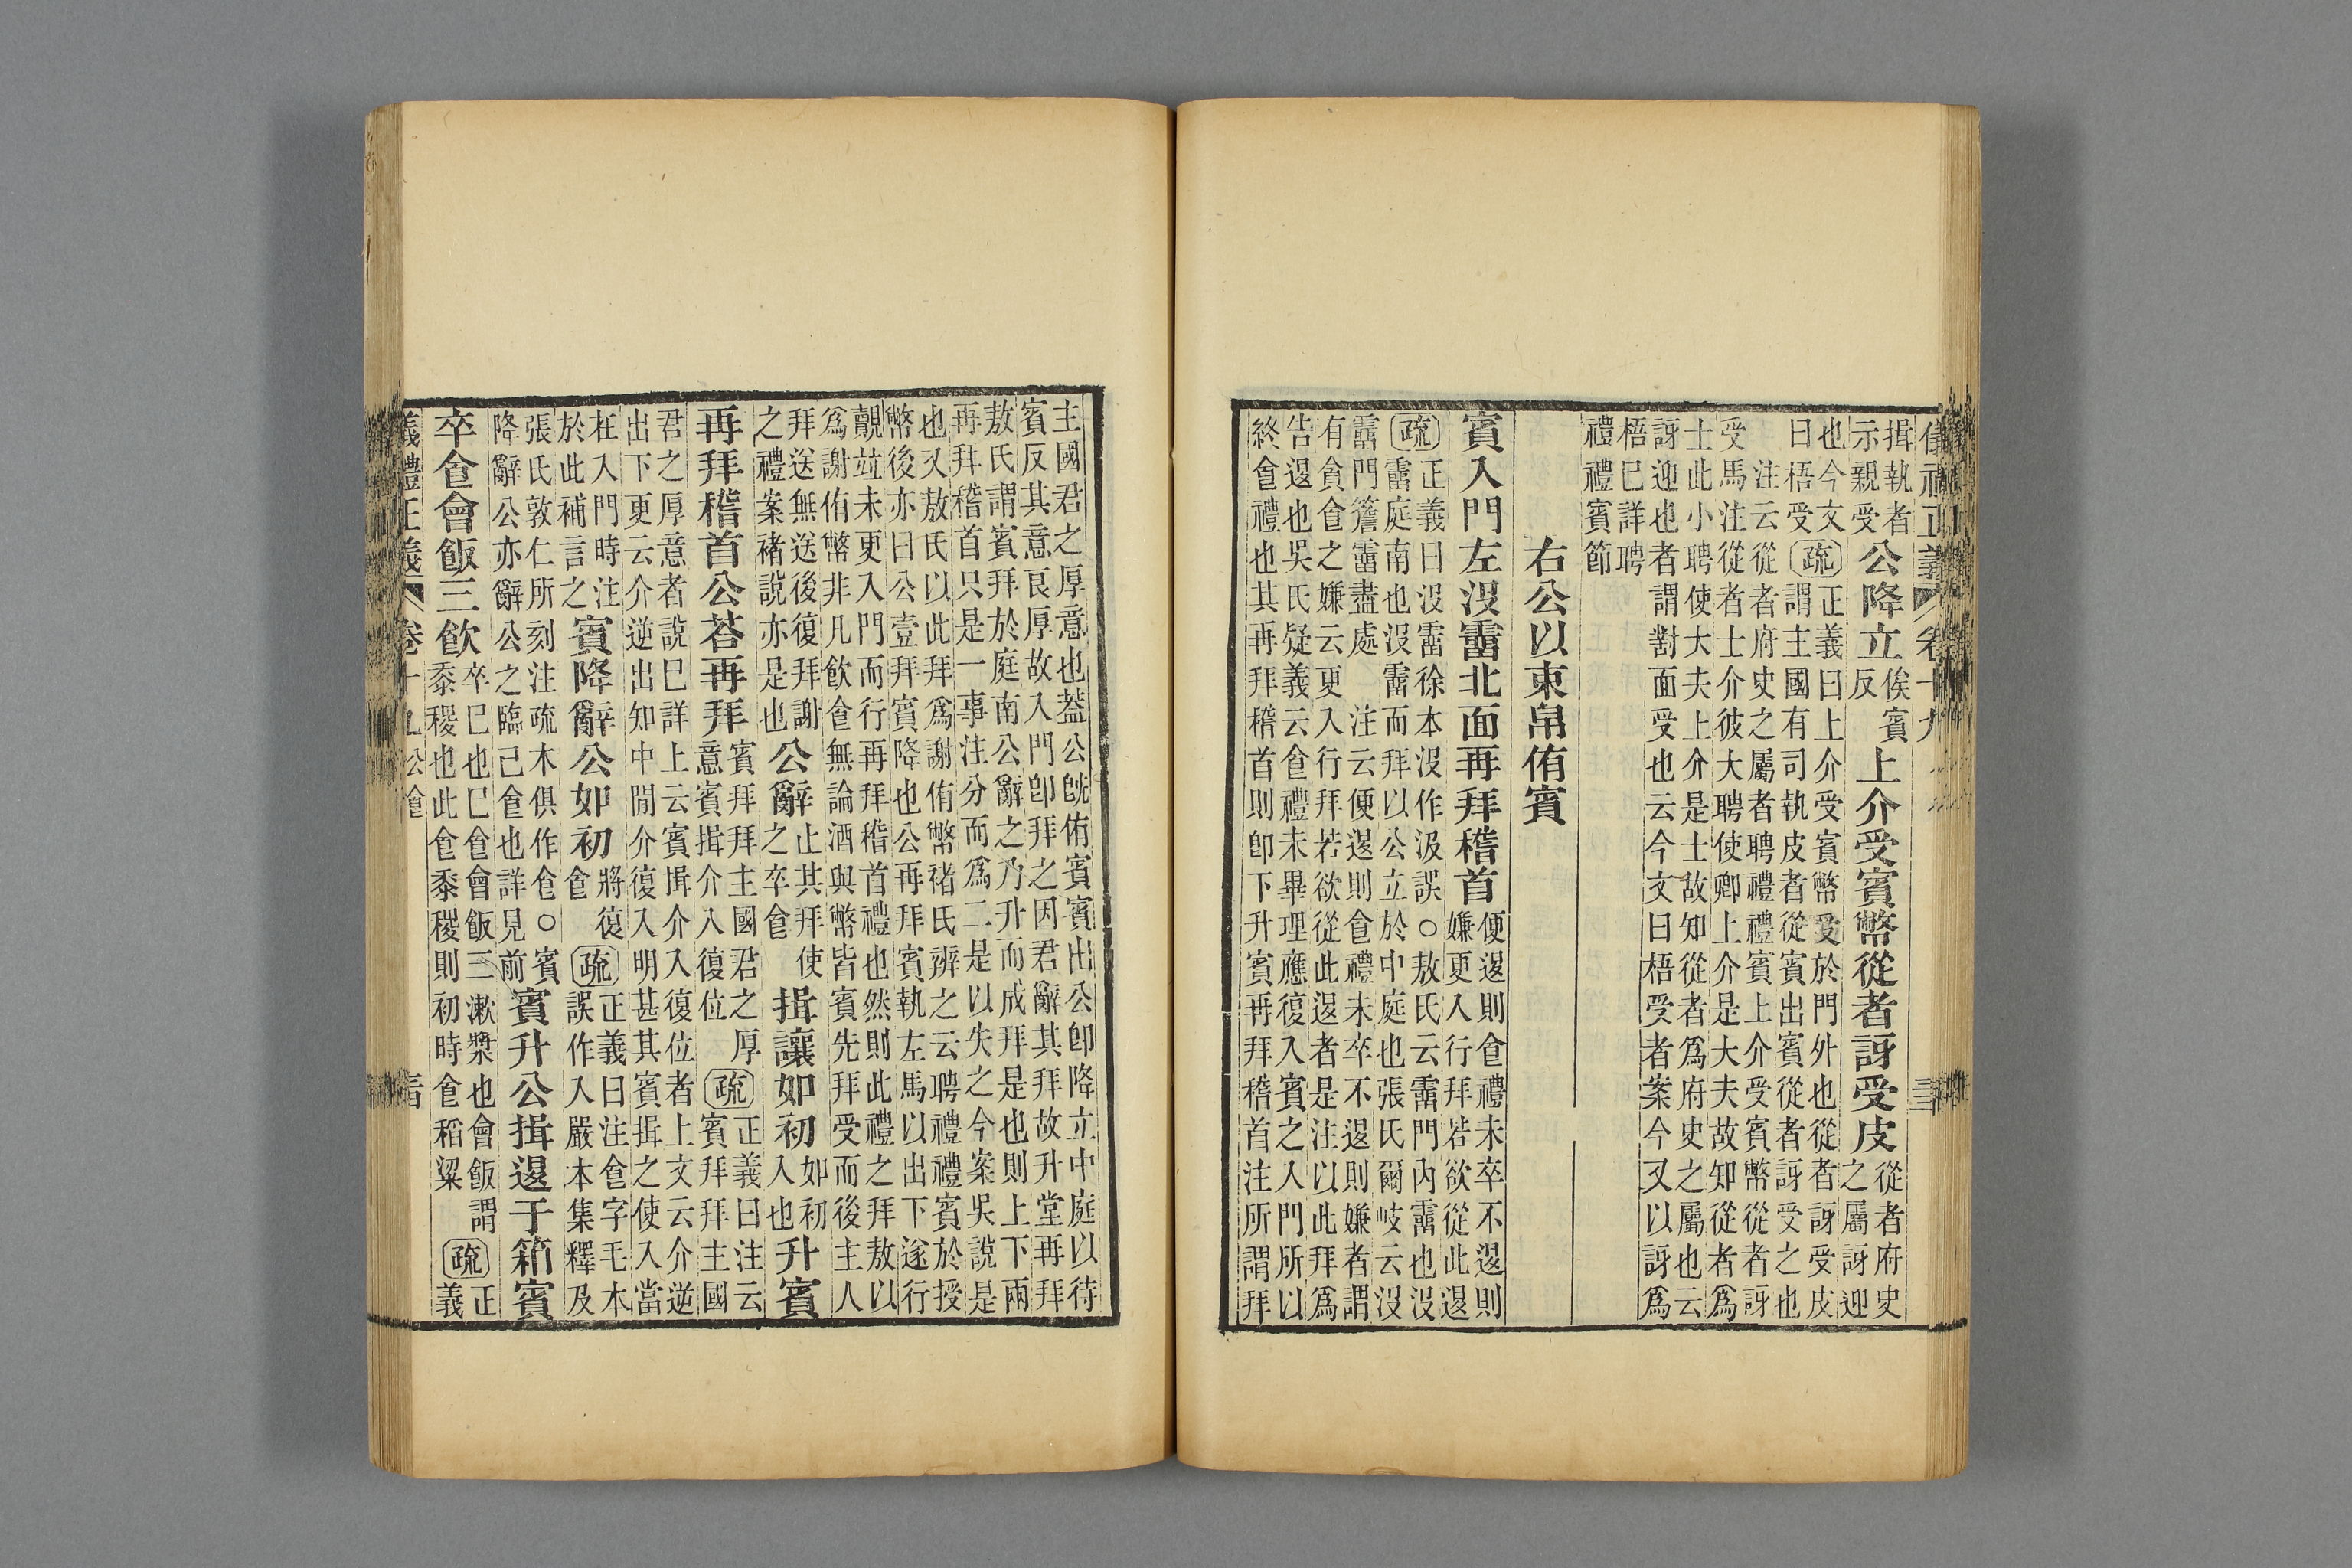 儀禮正義 卷十九
揖執者
示親受
公降立
俟賓
反
上介受賓幣從者訝受皮
從者府史
之屬訝迎
也今文
曰梧受
疏
正義曰上介受賓幣受於門外也從者訝受皮
謂主國有司執皮者從賓出賓從者訝受之也
注云從者府史之屬者聘禮禮賓上介受賓幣從者訝
受馬注從者士介彼大聘使卿上介是大夫故知從者爲
士此小聘使大夫上介是士故知從者爲府史之屬也云
訝迎也者謂對面受也云今文曰梧受者案今又以訝爲
梧巳詳聘
禮禮賓節
右公以束帛侑賓
賓入門左沒霤北面再拜稽首
便退則食禮未卒不退則
嫌更入行拜若欲從此退
疏
正義曰沒霤徐本沒作汲誤○敖氏云霤門內霤也沒
霤庭南也沒霤而拜以公立於中庭也張氏爾岐云沒
霤門簷霤盡處 注云便退則食禮未卒不退則嫌者謂
有貪食之嫌云更入行拜若欲從此退者是注以此拜爲
告退也吳氏疑義云食禮未畢理應復入賓之入門所以
終食禮也其再拜稽首則卽下升賓再拜稽首注所謂拜
主國君之厚意也葢公旣侑賓賓出公卽降立中庭以待
賓反其意良厚故入門卽拜之因君辭其拜故升堂再拜
敖氏謂賓拜於庭南公辭之乃升而成拜是也則上下兩
再拜稽首只是一事注分而爲二是以失之今案吳說是
也又敖氏以此拜爲謝侑幣褚氏辨之云聘禮禮賓於授
幣後亦曰公壹拜賓降也公再拜賓執左馬以出下遂行
覿竝未更入門而行再拜稽首禮也然則此禮之拜敖以
爲謝侑幣非凡飲食無論酒與幣皆賓先拜受而後主人
拜送無送後復拜謝
之禮案褚說亦是也
公辭
止其拜使
之卒食
揖讓如初
如初
入也
升賓
再拜稽首公荅再拜
賓拜拜主國君之厚
意賓揖介入復位
疏
正義曰注云
賓拜拜主國
君之厚意者說巳詳上云賓揖介入復位者上文云介逆
出下更云介逆出知中閒介復入明甚其賓揖之使入當
在入門時注
於此補言之
賓降辭公如初
將復
食
疏
正義曰注食字毛本
誤作入嚴本集釋及
張氏敦仁所刻注疏本俱作食○賓
降辭公亦辭公之臨己食也詳見前
賓升公揖退于箱賓
卒食會飯三飲
卒巳也巳食會飯三漱漿也會飯謂
黍稷也此食黍稷則初時食稻粱
疏
正
義
義禮正義 卷十九 公食